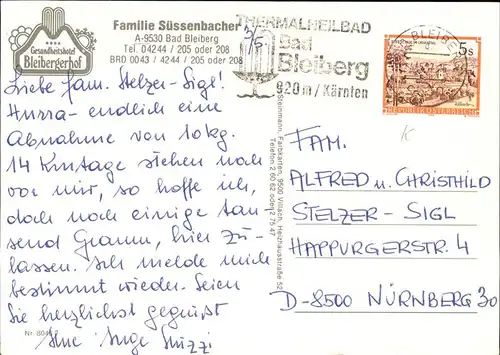 ★★★★
Gesundheitshotel
Bleibergerhof
Familie Süssenbacher
A-9530 Bad Bleiberg
Tel. 04244 / 205 oder 208
BRD 0043 / 4244 / 205 oder 208
THERMALHEILBAD
Bad
Bleiberg
920m/Kärnten
BLEIBERG
5 S
REPUBLIK ÖSTERREICH
Liebe Fam. Stelzer-Sigl!
Hurra - endlich eine
Abnahme von 10 kg.
14 Kurtage stehen noch
vor mir, so hoffe ich,
doch noch einige tau-
send Gramm, hier zu-
lassen. Ich melde mich
bestimmt wieder. Seien
Sie herzlichst gegrüßt
Ihre Inge
Nr. 804
FAM.
ALFRED u. CHRISTHILD
STELZER-SIGL
HAPPURGERSTR. 4
D-8500 NÜRNBERG 30